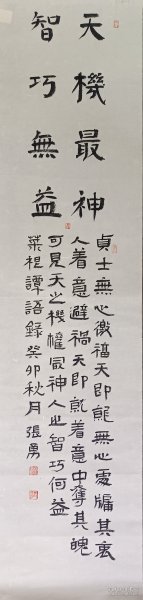 天機最神
智巧無益
貞士無心徼福天即就無心處牖其衷
人着意避禍天即就着意中奪其魄
可見天之機權最神人之智巧何益
菜根譚語錄癸卯秋月張勇